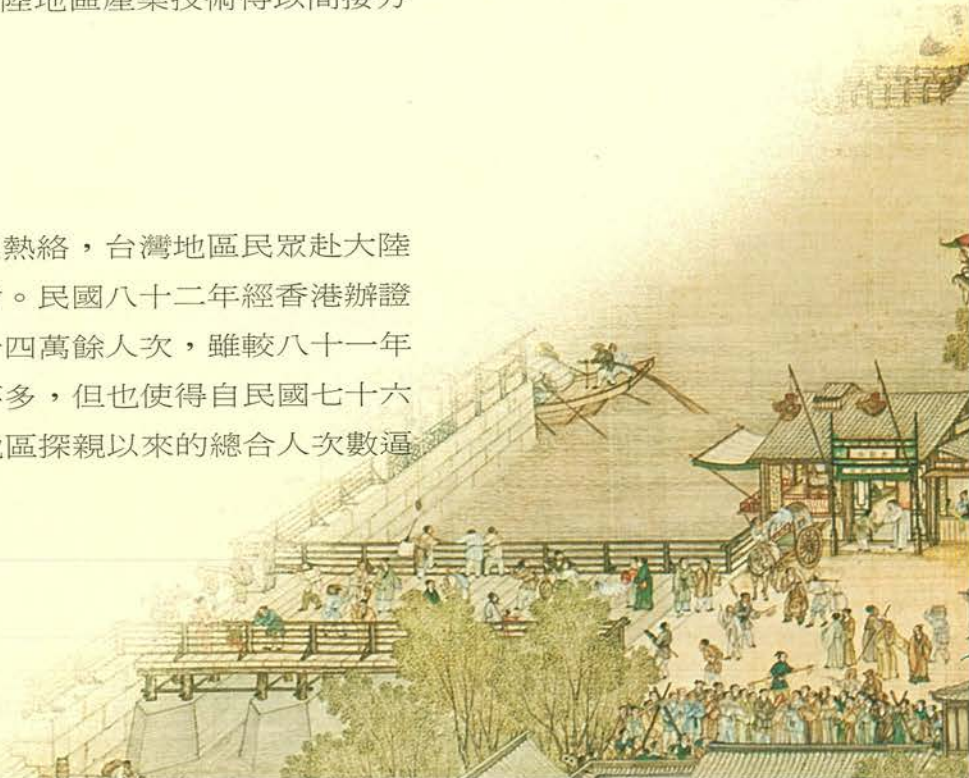 陸地區產業技術得以間接
熱絡，台灣地區民眾赴大陸
。民國八十二年經香港辦證
四萬餘人次，雖較八十一年
多，但也使得自民國七十六
區探親以來的總合人次數逼